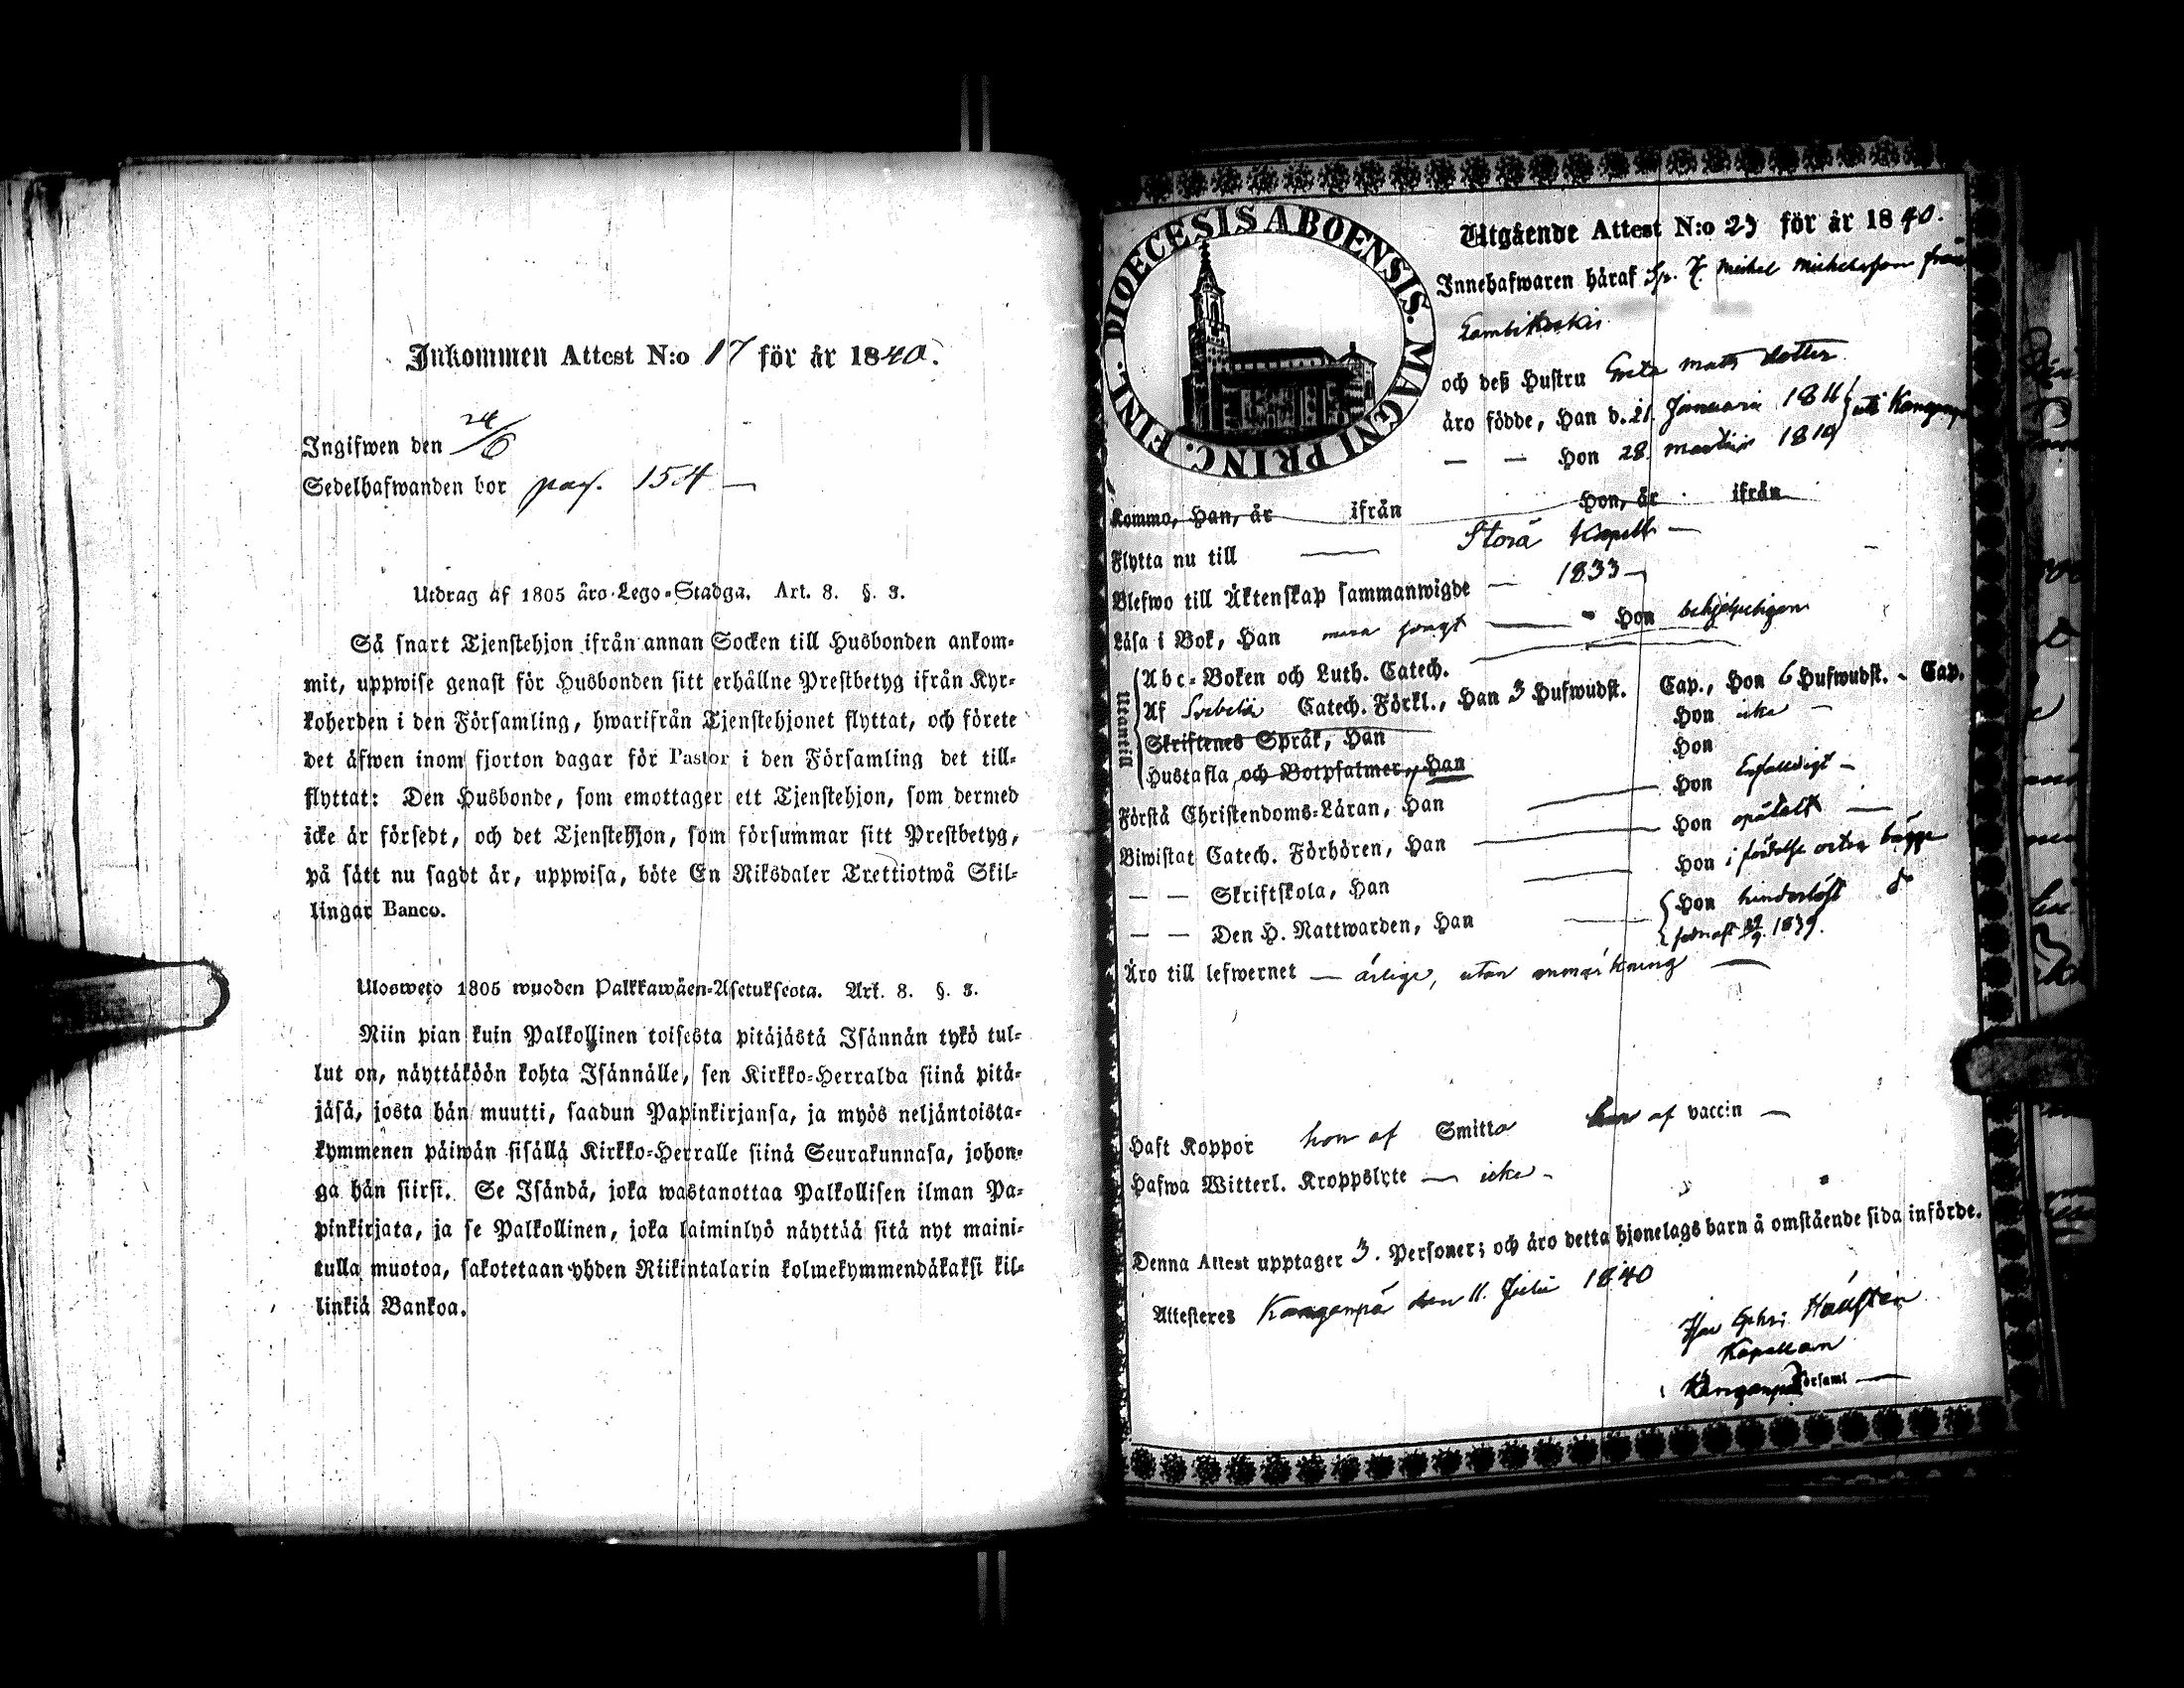 Inkommen Attest N:o 17 för år 1840.
Ingifwen den 24/6
Sedelhafwanden bor pag. 154 —
Utdrag af 1805 års Lego-Stadga. Art. 8. §. 3.
Så snart Tjenstehjon ifrån annan Socken till Husbonden ankom-
mit, uppwise genast för Husbonden sitt erhållne Prestbetyg ifrån Kyr-
koherden i den Församling, hwarifrån Tjenstehjonet flyttat, och förete
det äfwen inom fjorton dagar för Pastor i den Församling det till-
flyttat: Den Husbonde, som emottager ett Tjenstehjon, som dermed
icke är försedt, och det Tjenstehjon, som försummar sitt Prestbetyg,
på sätt nu sagdt är, uppwisa, böte En Riksdaler Trettiotwå Skil-
lingar Banco.
Ulosweto 1805 wuoden Palkkawäen-Asetuksesta. Art. 8. §. 3.
Niin pian kuin Palkollinen toisesta pitäjästä Isännän tykö tul-
lut on, näyttäköön kohta Isännälle, sen Kirkko-Herralda siinä pitä-
jäsä, josta hän muutti, saadun Papinkirjansa, ja myös neljäntoista-
kymmenen päiwän sisällä Kirkko-Herralle siinä Seurakunnasa, johon-
ga hän siirsi. Se Isändä, joka wastanottaa Palkollisen ilman Pa-
pinkirjata, ja se Palkollinen, joka laiminlyö näyttää sitä nyt maini-
tulla muotoa, sakotetaan yhden Riikintalarin kolmekymmendäkaksi kil-
linkiä Bankoa.
DIOECESIS ABOENSIS. MAGNI PRINC. FINL.
Utgående Attest N:o 23 för år 1840.
Innehafwaren häraf Michel Michelsson från
och deß Hustru Greta Matts dotter
äro födde, Han d. 21. Januarii 1811 uti
— — Hon 28 Martii 1810
Kommo, Han, år ifrån Hon, år ifrån
Flytta nu till — Storå Kapell —
Blefwo till Äktenskap sammanwigde — 1833 —
Läsa i Bok, Han — Hon behjelpeligen
Utantill
Abc-Boken och Luth. Catech.
Af Svebelii Catech. Förkl., Han 3 Hufwudst. Cap., Hon 6 Hufwudst. - Cap.
Skriftenes Språk, Han Hon icke —
Hustafla och Botpsalmer, Han Hon
Förstå Christendoms-Läran, Han — Hon Enfaldigt —
Biwistat Catech. Förhören, Han — Hon —
— — Skriftskola, Han — Hon i bägge
— — Den H. Nattwarden, Han — Hon hinderlöst
1839.
Äro till lefwernet — ärlige, utan anmärkning —
Haft Koppor hon af Smitta han af vaccin —
Hafwa Witterl. Kroppslyte — icke -
Denna Attest upptager 3. Personer; och äro detta hjonelags barn å omstående sida införde.
Attesteres Kanganpä den 11. Julii 1840
Kapellan
Församl —